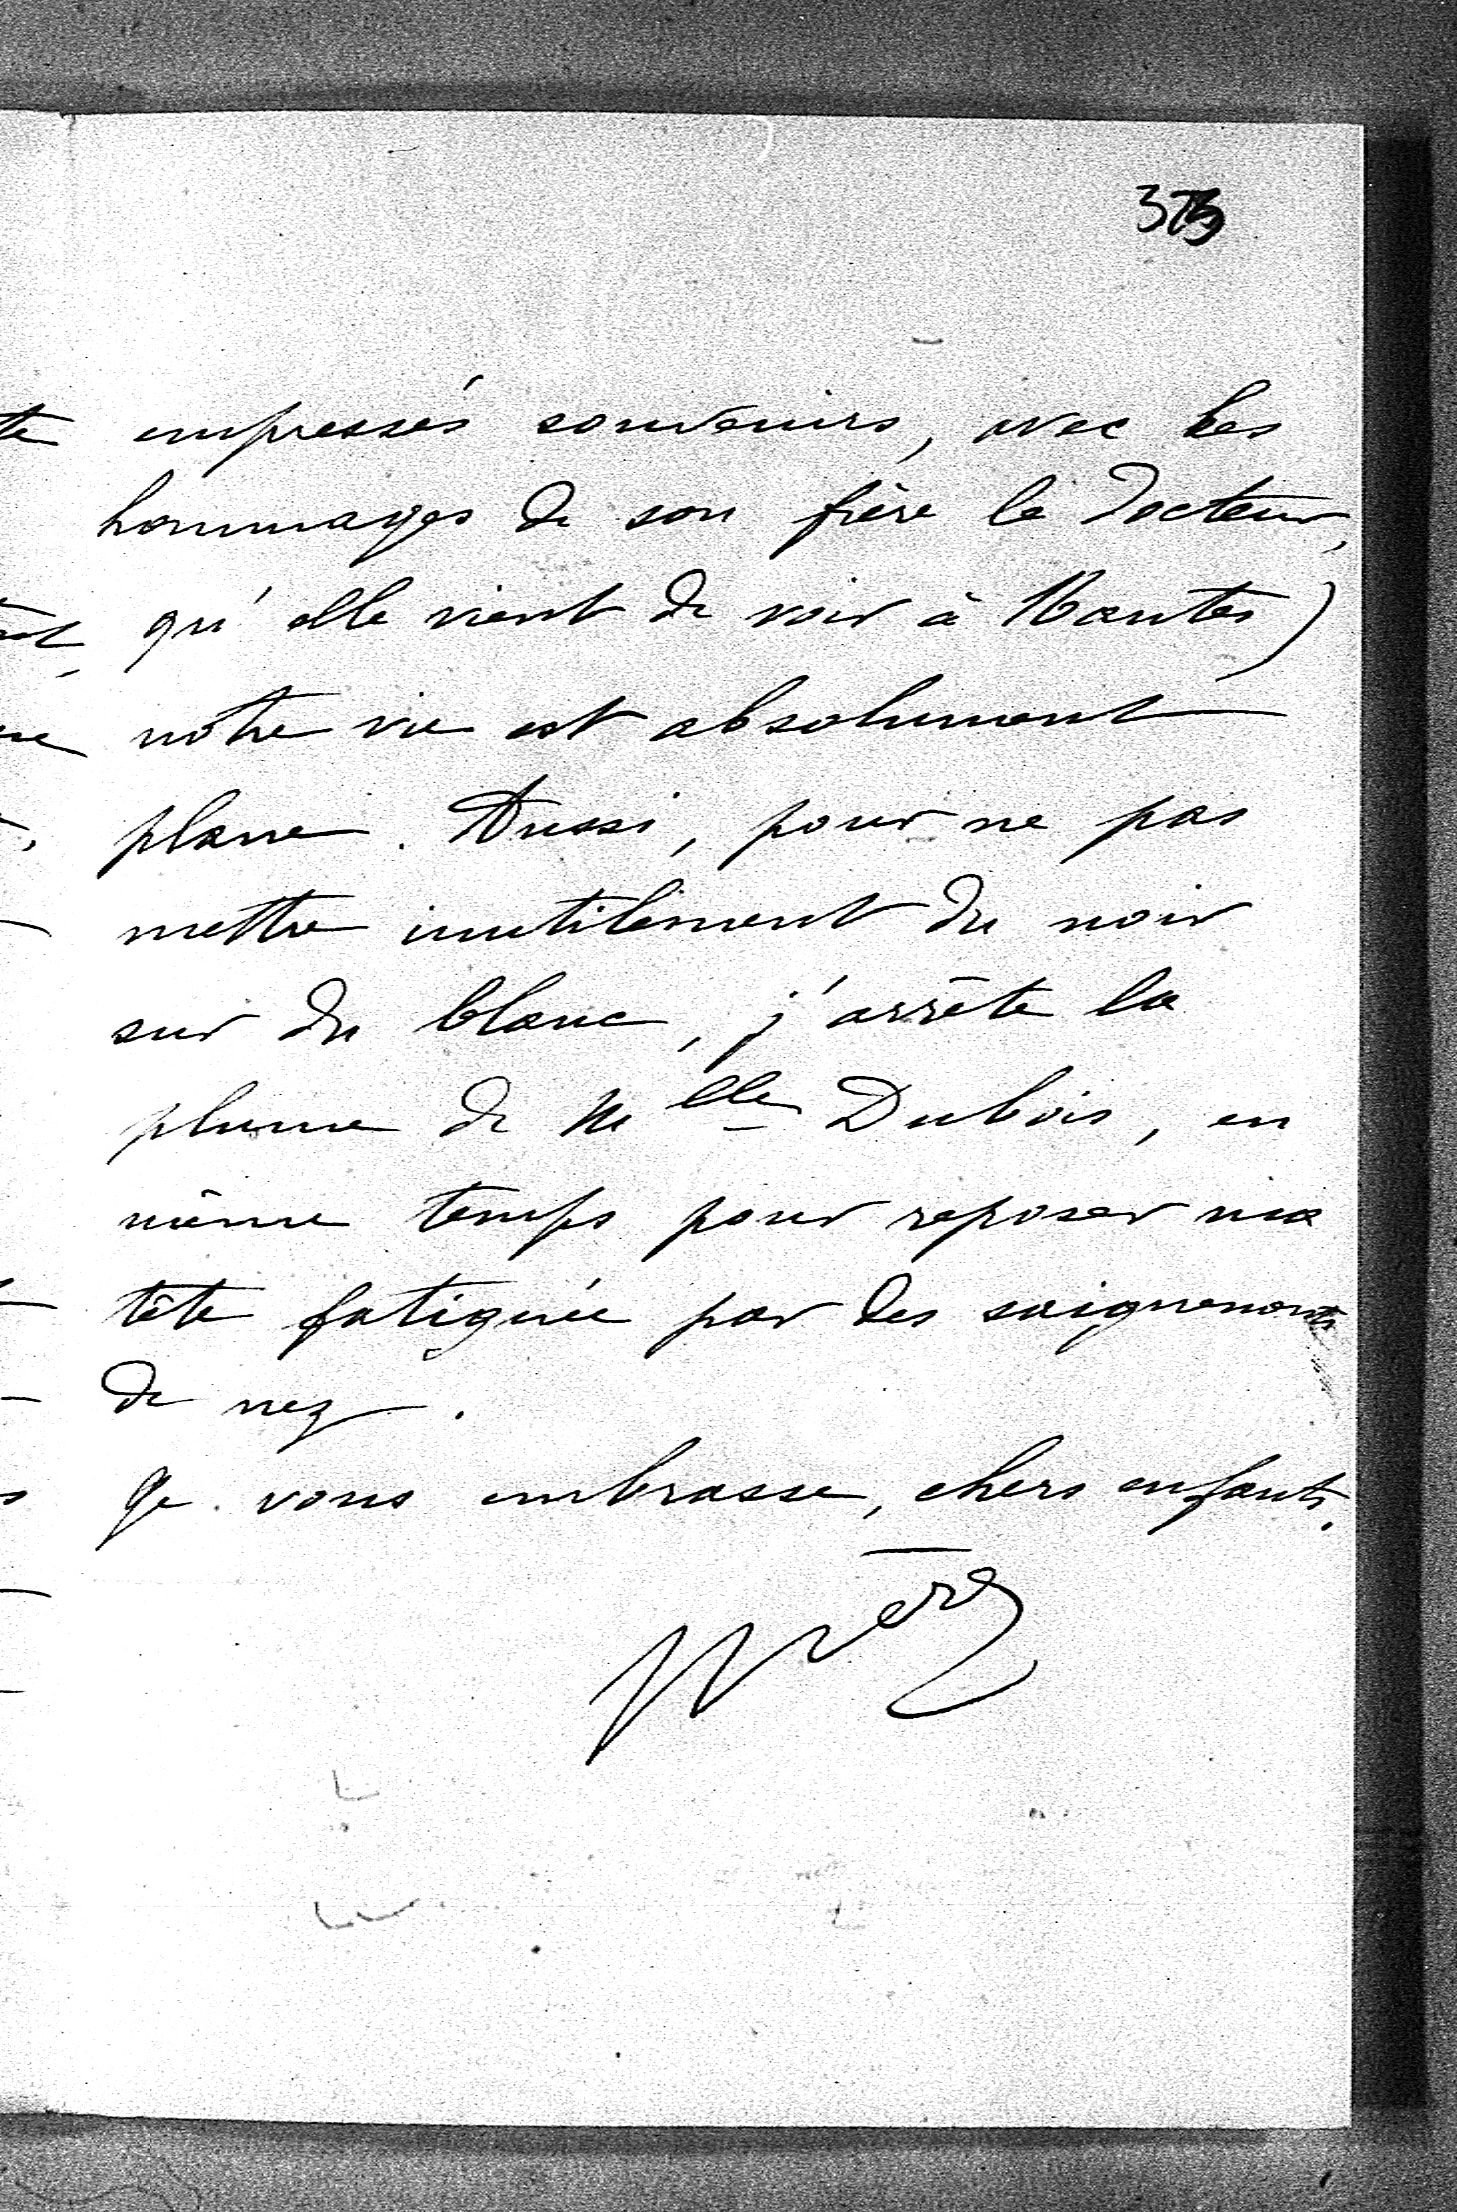 empressés souvenirs, avec les
hommages de son frère le Docteur,
qu'elle vient de voir à Nantes)
notre vie est absolument
plane. Aussi, pour ne pas
mettre inutilement du noir
sur du blanc, j'arrête la
plume de Mlle Dubois, en
même temps pour reposer ma
tête fatiguée par des saignements
de nez.
Je vous embrasse, chers enfants.
Mère